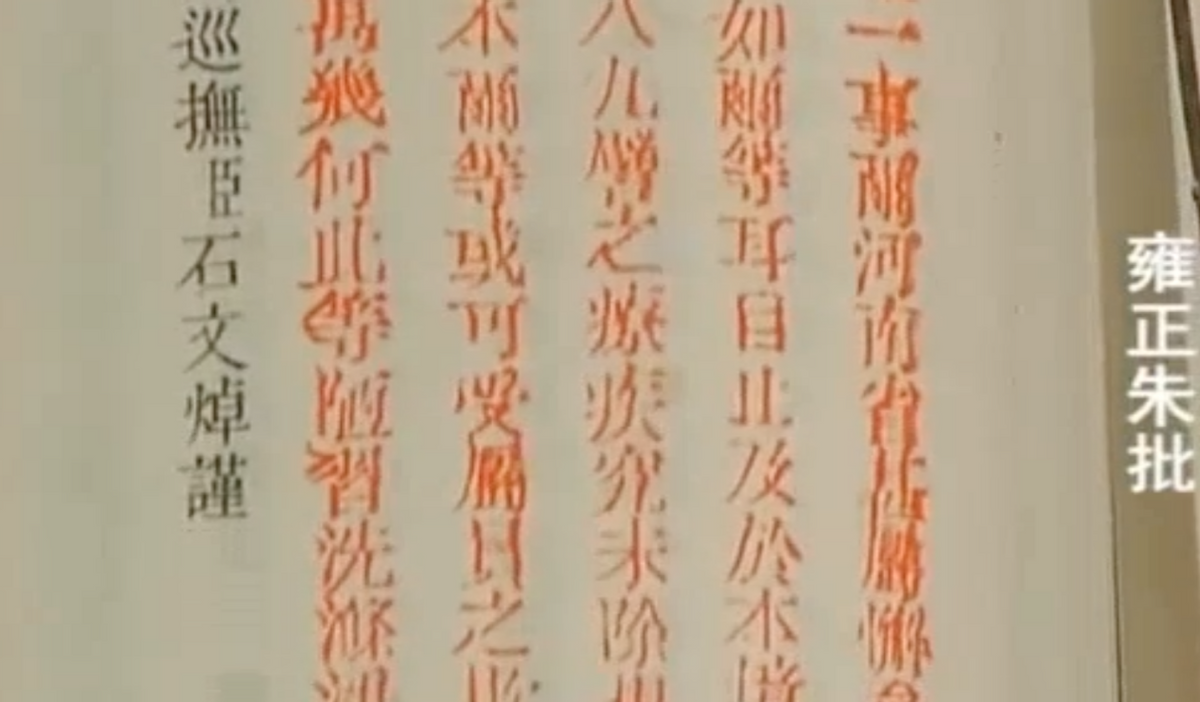 雍正朱批
一事爾河南省屬
如爾等耳目止及於本境
八九之疾究未除
不爾等或可受屬員之
幾何此等陋習洗滌
巡撫臣石文焯謹